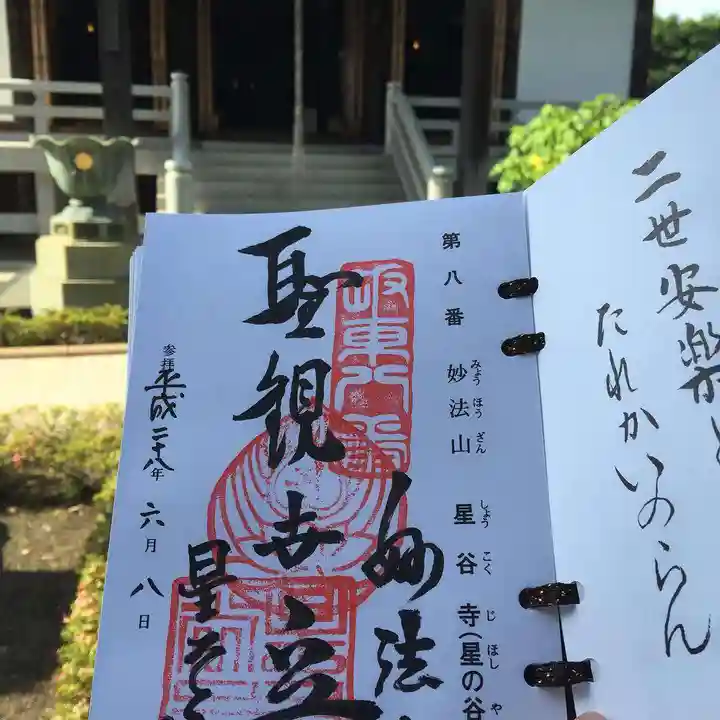 二世安楽と
たれかいのらん
第八番 妙法山 星谷寺(星の谷
みょうほうざん しょうこくじ ほし や
坂東八番
妙法
聖観世音
星谷
参拝 平成二十八年 六月 八日